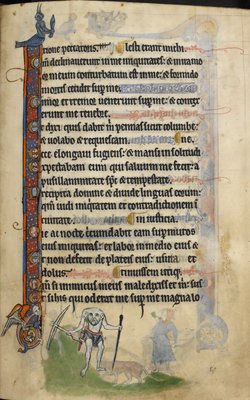 tione peccatoris. lesti erant michi.
m declinauerunt in me iniquitates: & in ira mo
or meum conturbatum est in me: & formido
mortis cecidit super me.
imor & tremor uenerunt sup me: & contex
erunt me tenebre.
t dixi quis dabit michi pennas sicut columbe:
& uolabo & requiescam. ne.
cce elongaui fugiens: & mansi in solitudi
xpectabam eum qui saluum me fecit: a
pusillanimitate sps & tempestate.
recipita domine & diuide linguas eorum:
qm uidi iniquitatem & contradictionem i
ciuitate. in iusticia.
ie ac nocte circumdabit eam super muros
eius iniquitas: et labor in medio eius &
t non defecit de plateis eius: usura &
dolus. tinuissem utiq.
m si inimicus meus maledixisset m: sus
t si his qui oderat me sup me magna lo